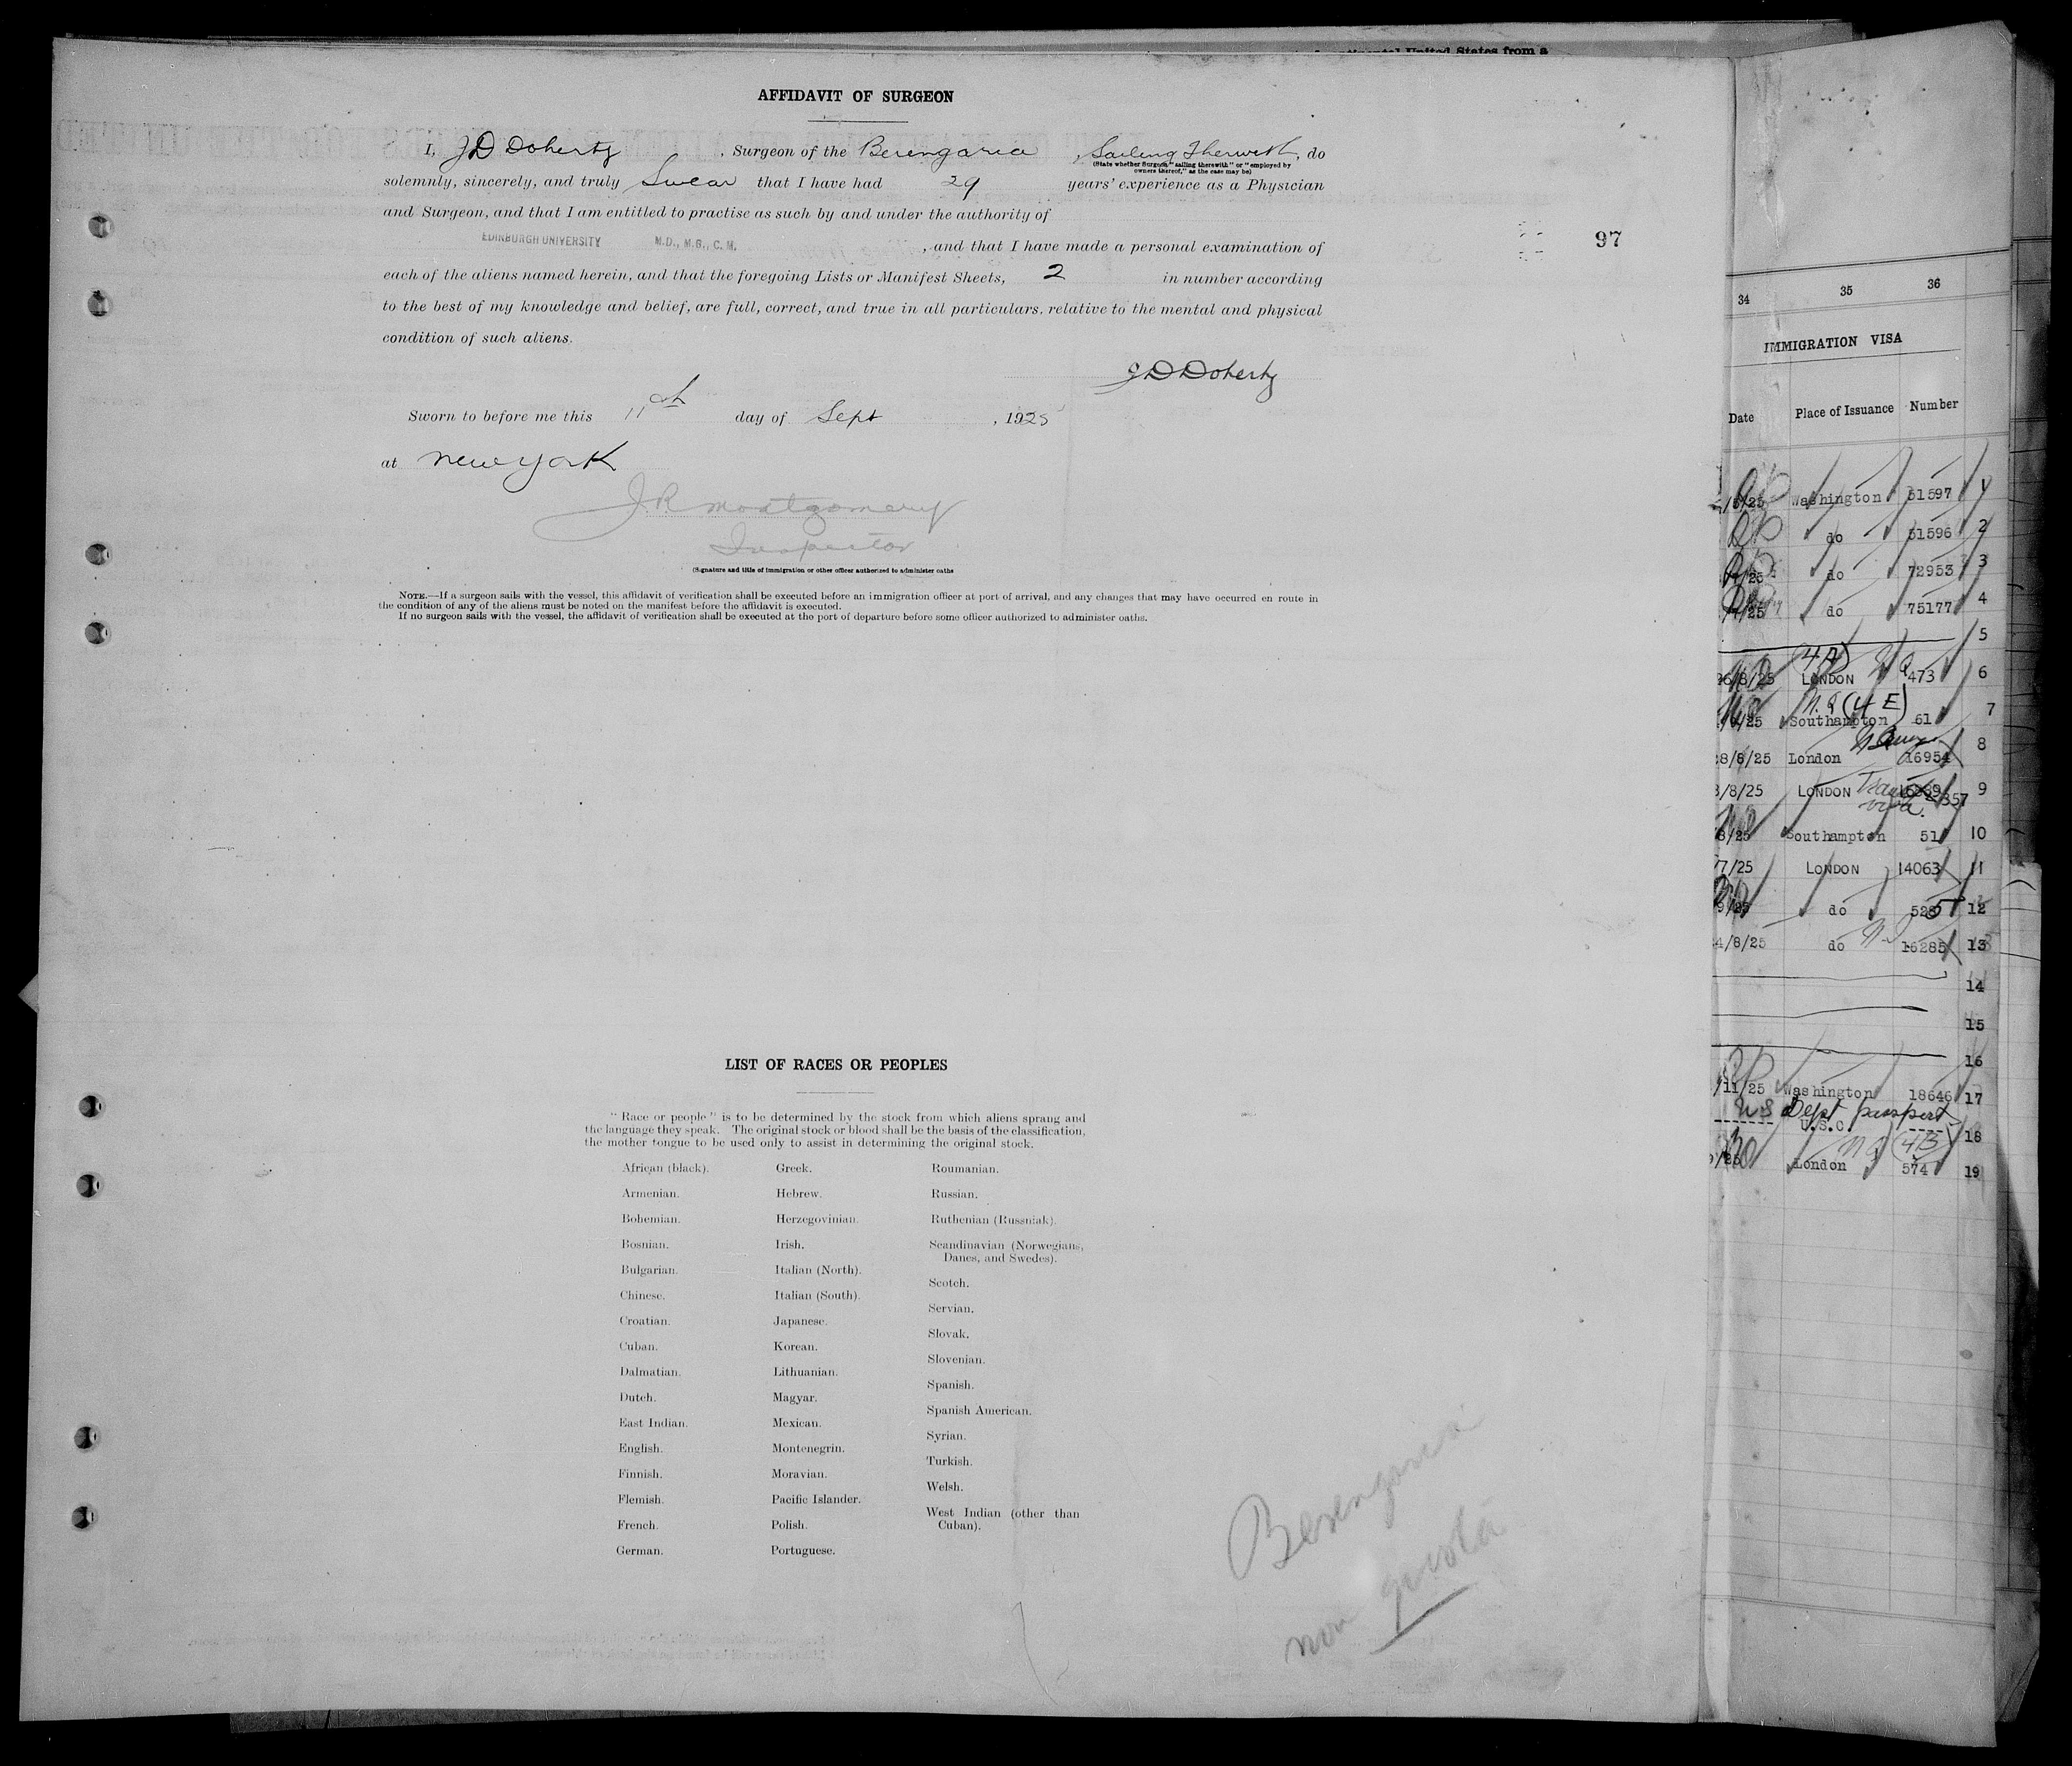 continental United States from a
AFFIDAVIT OF SURGEON
I, J D Doherty, Surgeon of the Berengaria, Sailing Therewith, do
(State whether Surgeon "sailing therewith" or "employed by
owners thereof," as the case may be)
solemnly, sincerely, and truly Swear that I have had 29 years' experience as a Physician
and Surgeon, and that I am entitled to practise as such by and under the authority of
EDINBURGH UNIVERSITY M.D., M.B., C.M. , and that I have made a personal examination of
97
each of the aliens named herein, and that the foregoing Lists or Manifest Sheets, 2 in number according
to the best of my knowledge and belief, are full, correct, and true in all particulars, relative to the mental and physical
condition of such aliens.
J D Doherty
Sworn to before me this 11th day of Sept, 1925
at New York
J.R. Montgomery
Inspector
(Signature and title of immigration or other officer authorized to administer oaths
NOTE.—If a surgeon sails with the vessel, this affidavit of verification shall be executed before an immigration officer at port of arrival, and any changes that may have occurred en route in
the condition of any of the aliens must be noted on the manifest before the affidavit is executed.
If no surgeon sails with the vessel, the affidavit of verification shall be executed at the port of departure before some officer authorized to administer oaths.
LIST OF RACES OR PEOPLES
"Race or people" is to be determined by the stock from which aliens sprang and
the language they speak. The original stock or blood shall be the basis of the classification,
the mother tongue to be used only to assist in determining the original stock.
African (black).
Armenian.
Bohemian.
Bosnian.
Bulgarian.
Chinese.
Croatian.
Cuban.
Dalmatian.
Dutch.
East Indian.
English.
Finnish.
Flemish.
French.
German.
Greek.
Hebrew.
Herzegovinian.
Irish.
Italian (North).
Italian (South).
Japanese.
Korean.
Lithuanian.
Magyar.
Mexican.
Montenegrin.
Moravian.
Pacific Islander.
Polish.
Portuguese.
Roumanian.
Russian.
Ruthenian (Russniak).
Scandinavian (Norwegians,
Danes, and Swedes).
Scotch.
Servian.
Slovak.
Slovenian.
Spanish.
Spanish American.
Syrian.
Turkish.
Welsh.
West Indian (other than
Cuban).
Berengaria
non quota
34 35 36
IMMIGRATION VISA
Date Place of Issuance Number
/5/25 Washington 51597 1
do 51596 2
/25 do 72953 3
/7/25 do 75177 4
5
(4A)
26/8/25 LONDON 473 6
N.Q (4 E)
/25 Southampton 61 7
28/8/25 London 16954 8
/8/25 LONDON 9
8/25 Southampton 51 10
/7/25 LONDON 14063 11
9/25 do 528 12
4/8/25 do 16285 13
14
15
16
/11/25 Washington 18646 17
US Dept passport
U.S.C. 18
NQ (4B)
9/25 London 574 19